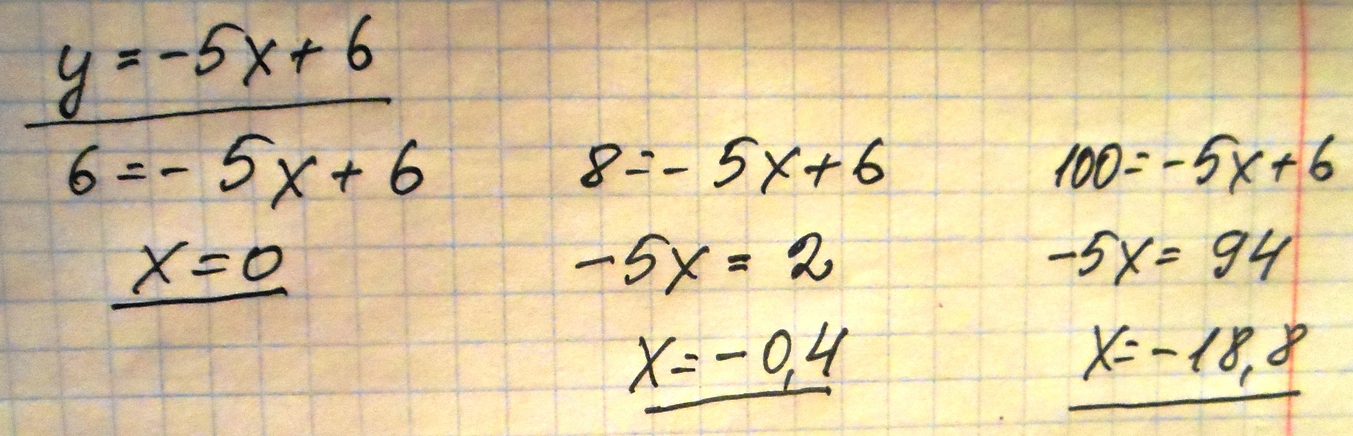 y = -5x + 6
6 = - 5x + 6
x = 0
8 = - 5x + 6
-5x = 2
x = -0,4
100 = -5x + 6
-5x = 94
x = -18,8